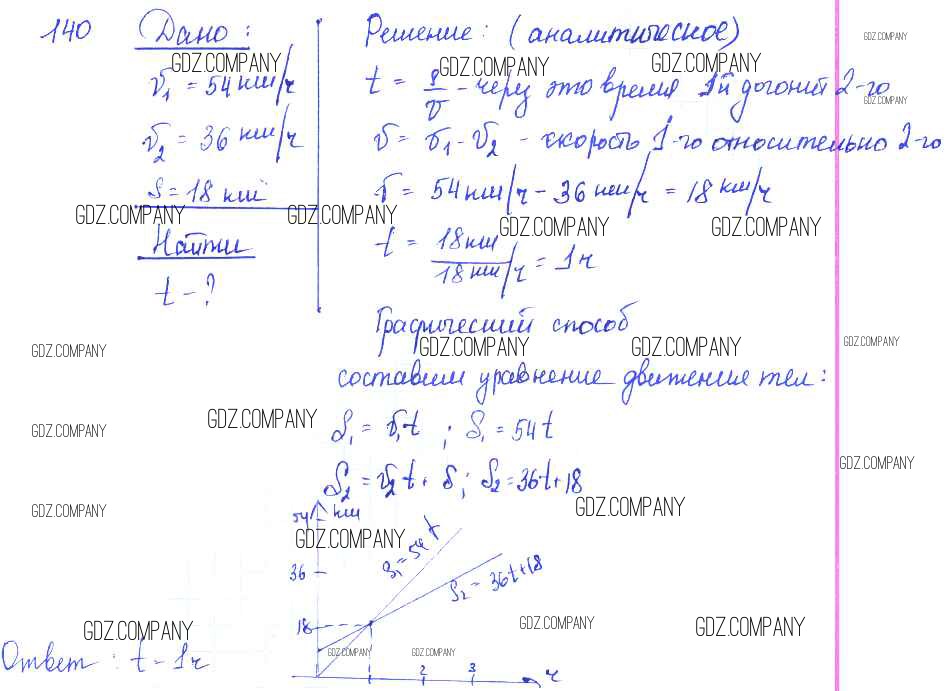 140 Дано: Решение: (аналитическое)
GDZ.COMPANY
GDZ.COMPANY GDZ.COMPANY GDZ.COMPANY
v₁ = 54 км/ч t = S/v - через это время 1й догонит 2-го
GDZ.COMPANY
v₂ = 36 км/ч v = v₁ - v₂ - скорость 1-го относительно 2-го
S = 18 км v = 54 км/ч - 36 км/ч = 18 км/ч
GDZ.COMPANY GDZ.COMPANY GDZ.COMPANY GDZ.COMPANY
Найти t = 18 км / 18 км/ч = 1 ч
t - ?
Графический способ
GDZ.COMPANY GDZ.COMPANY GDZ.COMPANY GDZ.COMPANY
составим уравнение движения тел:
GDZ.COMPANY GDZ.COMPANY
S₁ = v₁t ; S₁ = 54t
GDZ.COMPANY
S₂ = v₂t + S; S₂ = 36t+18
GDZ.COMPANY GDZ.COMPANY
54 км
GDZ.COMPANY
S₁ = 54t
36
S₂ = 36t+18
18
GDZ.COMPANY GDZ.COMPANY GDZ.COMPANY
GDZ.COMPANY GDZ.COMPANY
Ответ: t - 1ч
1 2 3 ч